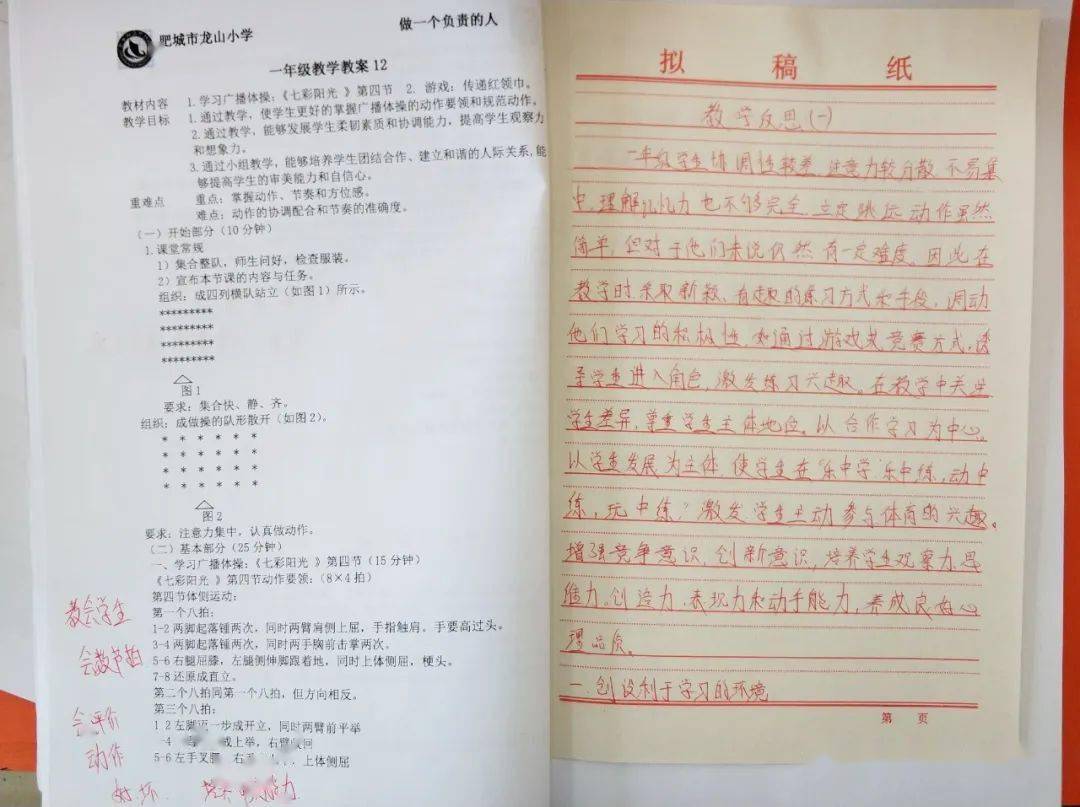 肥城市龙山小学
做一个负责的人
一年级教学教案12
教材内容 1.学习广播体操:《七彩阳光 》第四节 2. 游戏:传递红领巾。
教学目标 1.通过教学,使学生更好的掌握广播体操的动作要领和规范动作。
2.通过教学,能够发展学生柔韧素质和协调能力,提高学生观察力
和想象力。
3.通过小组教学,能够培养学生团结合作、建立和谐的人际关系,能
够提高学生的审美能力和自信心。
重难点 重点:掌握动作、节奏和方位感。
难点:动作的协调配合和节奏的准确度。
(一)开始部分(10分钟)
1.课堂常规
1)集合整队,师生问好,检查服装。
2)宣布本节课的内容与任务。
组织:成四列横队站立(如图1)所示。
*********
*********
*********
*********
图1
要求:集合快、静、齐。
组织:成做操的队形散开(如图2)。
* * * * * *
* * * * * *
* * * * * *
* * * * * *
图2
要求:注意力集中,认真做动作。
(二)基本部分(25分钟)
一、学习广播体操:《七彩阳光 》第四节(15分钟)
《七彩阳光 》第四节动作要领:(8×4拍)
第四节体侧运动:
第一个八拍:
1-2两脚起落锤两次,同时两臂肩侧上屈,手指触肩。手要高过头。
3-4两脚起落锤两次,同时两手胸前击掌两次。
5-6右腿屈膝,左腿侧伸脚跟着地,同时上体侧屈,梗头。
7-8还原成直立。
第二个八拍同第一个八拍,但方向相反。
第三个八拍:
1-2左脚迈一步成开立,同时两臂前平举
-4 成上举,右臂 回
5-6左手叉腰 右手 上体侧屈
教会学生
会数节拍
会评价
动作
好坏
拟稿纸
教学反思(一)
一年级学生协调性较差,注意力较分散,不易集
中,理解记忆力也不够完全,立定跳远动作虽然
简单,但对于他们来说仍然有一定难度。因此在
教学时采取新颖、有趣的练习方式和手段,调动
他们学习的积极性,如通过游戏或竞赛方式,诱
导学生进入角色,激发练习兴趣。在教学中关注
学生差异,尊重学生主体地位。以合作学习为中心。
以学生发展为主体,使学生在“乐中学,乐中练,动中
练,玩中练”激发学生主动参与体育的兴趣。
增强竞争意识,创新意识,培养学生观察力,思
维力,创造力,表现力和动手能力,养成良好心
理品质。
一.创设利于学习的环境
第 页